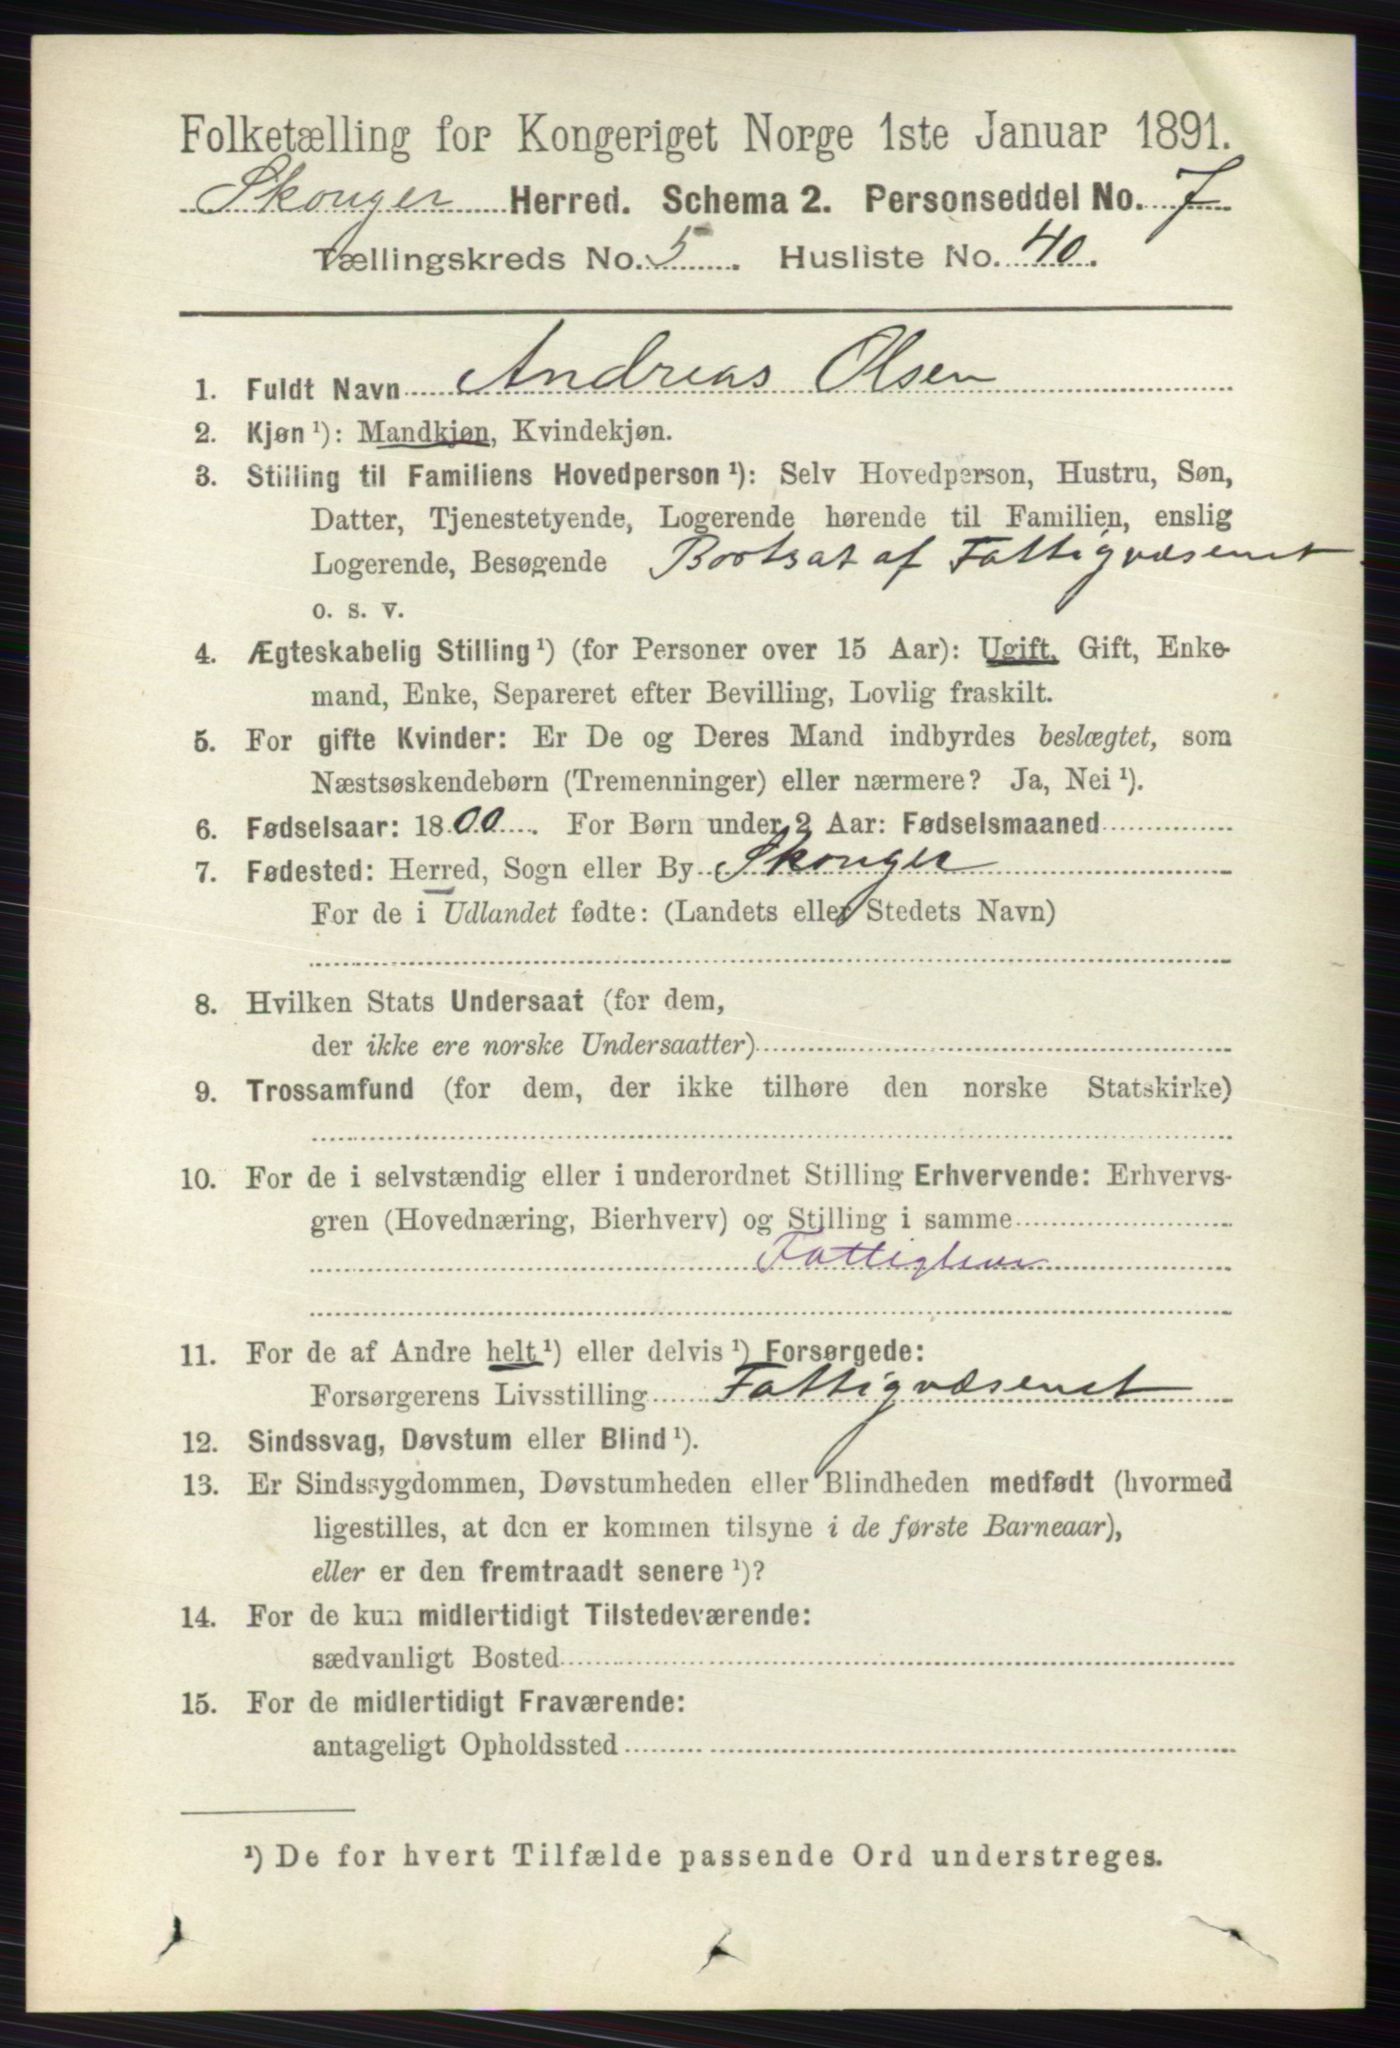 Folketælling for Kongeriget Norge 1ste Januar 1891.
Skouger Herred. Schema 2. Personseddel No. 7.
Tællingskreds No. 5. Husliste No. 40.
1. Fuldt Navn Andreas Olsen
2. Kjøn ¹): Mandkjøn, Kvindekjøn.
3. Stilling til Familiens Hovedperson ¹): Selv Hovedperson, Hustru, Søn,
Datter, Tjenestetyende, Logerende hørende til Familien, enslig
Logerende, Besøgende Bortsat af Fattigvæsenet
o. s. v.
4. Ægteskabelig Stilling ¹) (for Personer over 15 Aar): Ugift, Gift, Enke-
mand, Enke, Separeret efter Bevilling, Lovlig fraskilt.
5. For gifte Kvinder: Er De og Deres Mand indbyrdes beslægtet, som
Næstsøskendebørn (Tremenninger) eller nærmere? Ja, Nei ¹).
6. Fødselsaar: 1800. For Børn under 2 Aar: Fødselsmaaned
7. Fødested: Herred, Sogn eller By Skouger
For de i Udlandet fødte: (Landets eller Stedets Navn)
8. Hvilken Stats Undersaat (for dem,
der ikke ere norske Undersaatter)
9. Trossamfund (for dem, der ikke tilhøre den norske Statskirke)
10. For de i selvstændig eller i underordnet Stilling Erhvervende: Erhvervs-
gren (Hovednæring, Bierhverv) og Stilling i samme
Fattiglem
11. For de af Andre helt ¹) eller delvis ¹) Forsørgede:
Forsørgerens Livsstilling Fattigvæsenet
12. Sindssvag, Døvstum eller Blind ¹).
13. Er Sindssygdommen, Døvstumheden eller Blindheden medfødt (hvormed
ligestilles, at den er kommen tilsyne i de første Barneaar),
eller er den fremtraadt senere ¹)?
14. For de kun midlertidigt Tilstedeværende:
sædvanligt Bosted
15. For de midlertidigt Fraværende:
antageligt Opholdssted
¹) De for hvert Tilfælde passende Ord understreges.